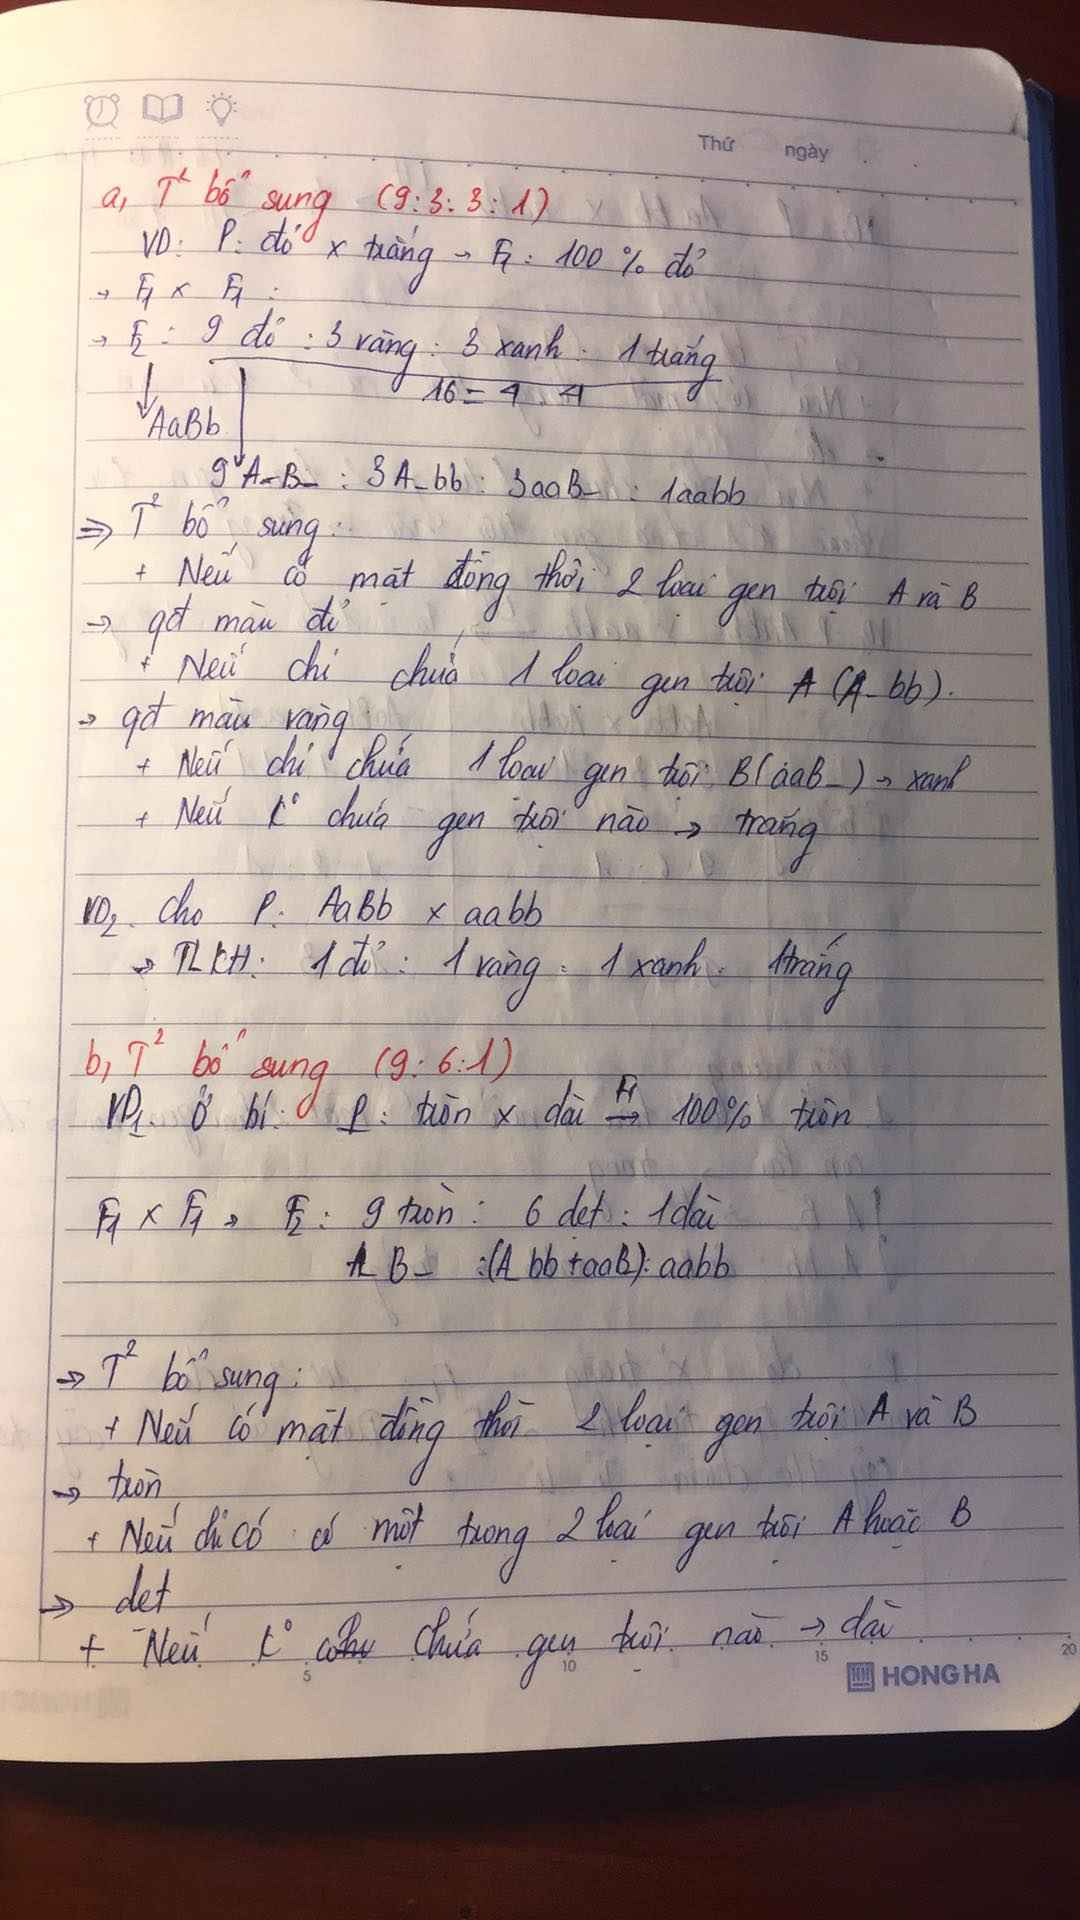 Thứ ngày
a, T² bổ sung (9:3:3:1)
VD: P: đỏ x trắng → F1: 100% đỏ
→ F1 x F1 :
→ F2 : 9 đỏ : 3 vàng : 3 xanh : 1 trắng
16 = 4 4
AaBb
9 A-B- : 3A-bb : 3aaB- : 1aabb
⇒ T² bổ sung:
+ Nếu có mặt đồng thời 2 loại gen trội A và B
→ qđ màu đỏ
+ Nếu chỉ chứa 1 loại gen trội A (A-bb).
→ qđ màu vàng
+ Nếu chỉ chứa 1 loại gen trội B(aaB-) → xanh
+ Nếu k° chứa gen trội nào → trắng
VD2. Cho P: AaBb x aabb
→ TLKH: 1 đỏ : 1 vàng : 1 xanh : 1 trắng
b, T² bổ sung (9:6:1)
VD1. Ở bí: P: tròn x dài F1 → 100% tròn
F1 x F1 → F2 : 9 tròn : 6 dẹt : 1 dài
A B- :(A bb+aaB):aabb
→ T² bổ sung:
+ Nếu có mặt đồng thời 2 loại gen trội A và B
→ tròn
+ Nếu chỉ có có một trong 2 loại gen trội A hoặc B
→ dẹt
+ Nếu k° chứa gen trội nào → dài
5 10 15 20
HONG HA